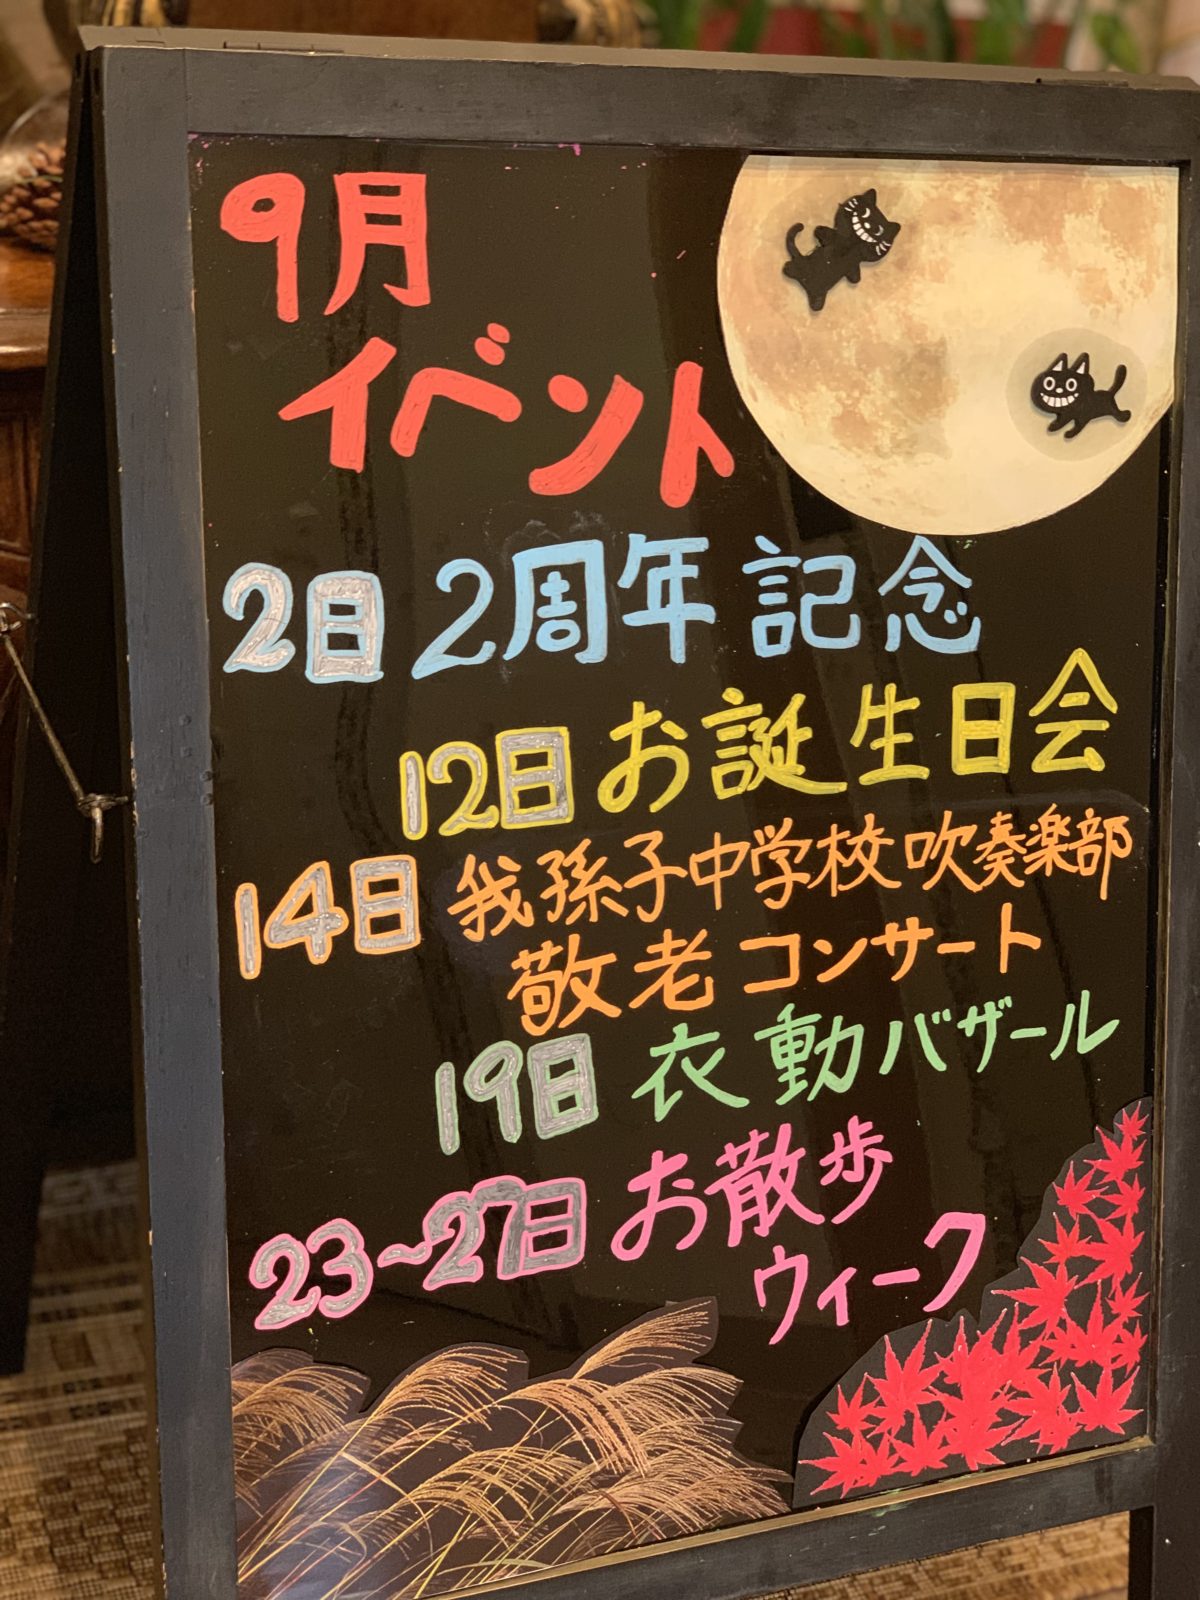 9月
イベント
2日 2周年記念
12日 お誕生日会
14日 我孫子中学校吹奏楽部
敬老コンサート
19日 衣動バザール
23~27日 お散歩
ウィーク